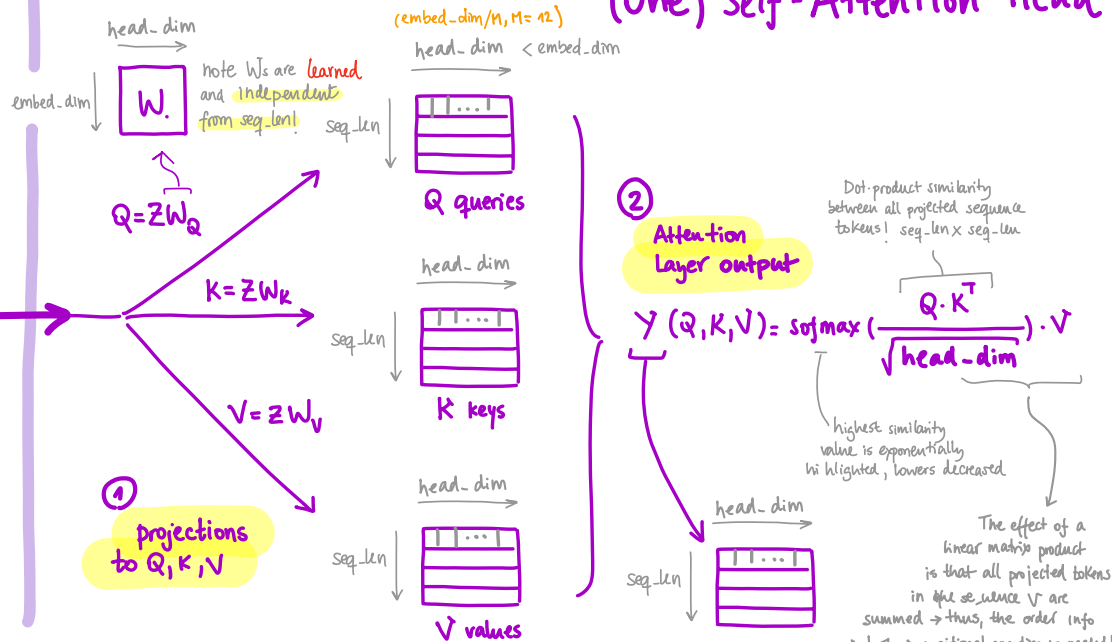 (one) Self-Attention Head
(embed_dim/M, M=12)
head_dim
embed_dim
W.
note Ws are learned
and independent
from seq_len!
Q=ZW_Q
K=ZW_K
V=ZW_V
1
projections
to Q, K, V
head_dim < embed_dim
seq_len
...
Q queries
head_dim
seq_len
...
K keys
head_dim
seq_len
...
V values
2
Attention
Layer output
Dot-product similarity
between all projected sequence
tokens! seq_len x seq_len
Y (Q,K,V) = sofmax ( Q·K^T / √head_dim ) · V
highest similarity
value is exponentially
hi hlighted, lowers decreased
head_dim
seq_len
...
The effect of a
linear matrix product
is that all projected tokens
in the se_uence V are
summed → thus, the order info